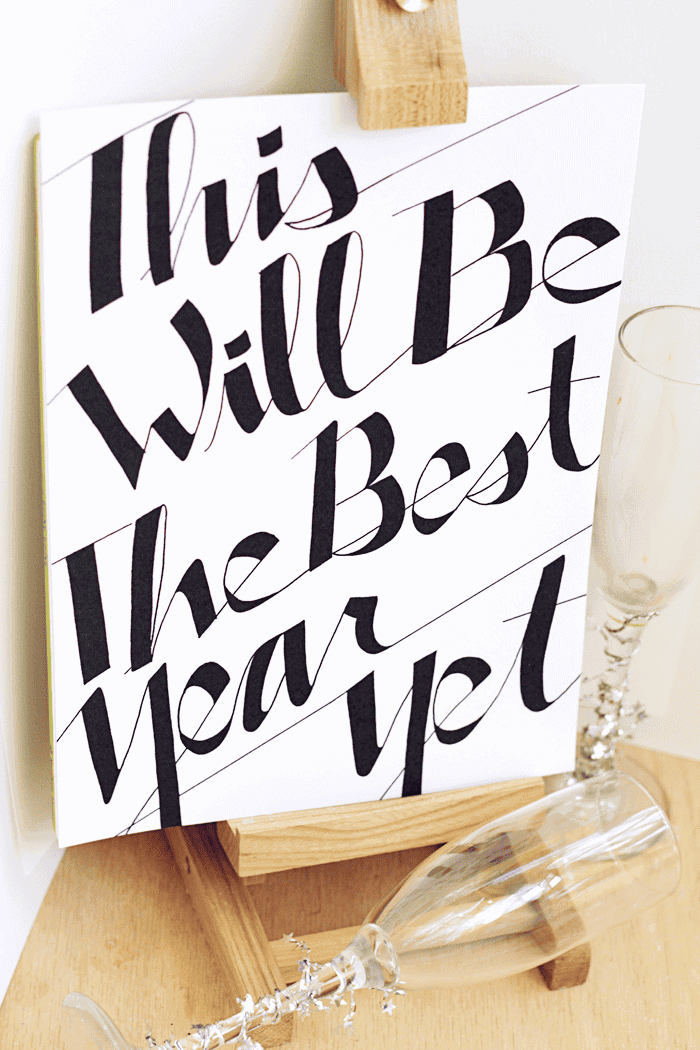 This
Will Be
The Best
Year Yet